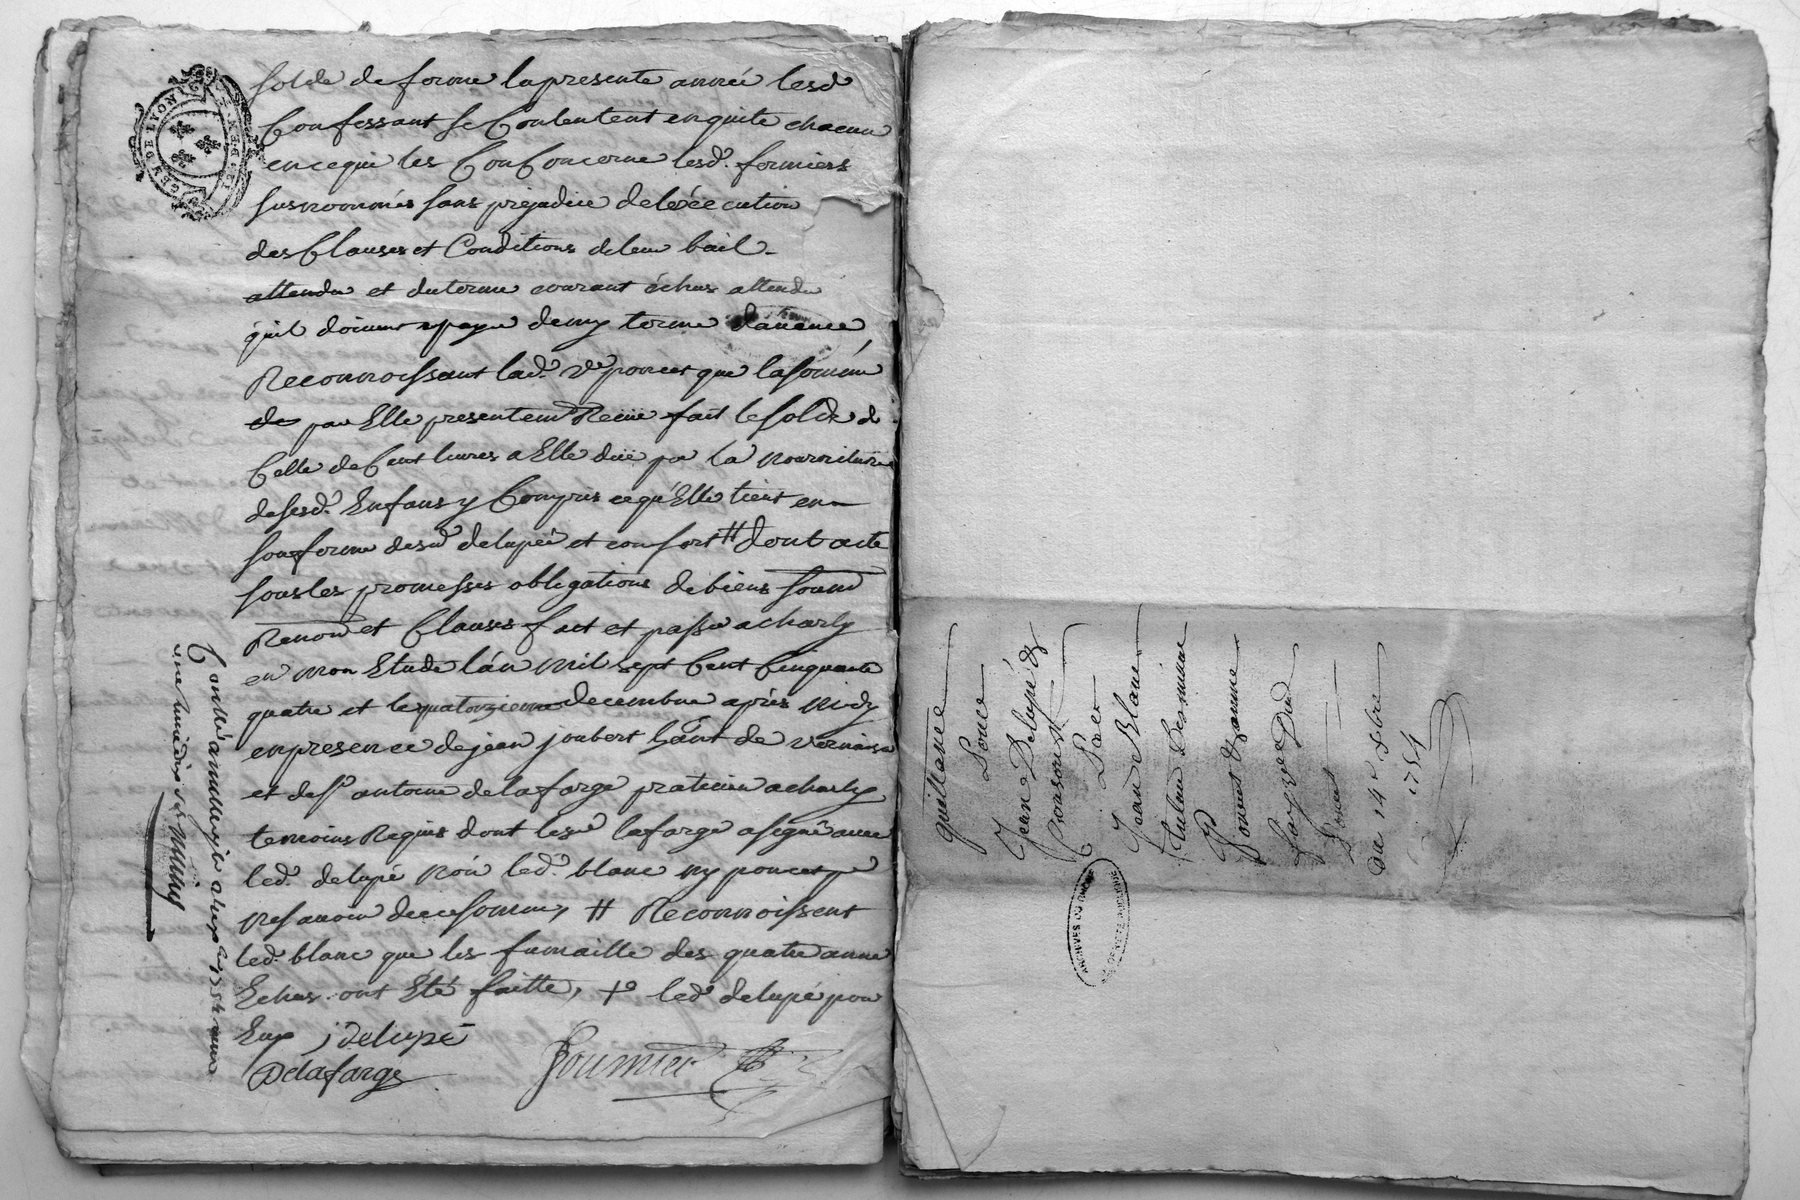 GEN DE LYON
solde de ferme la presente année lesd
Confessant se Contentent en quite chacun
en ce qui les Con Concerne lesd. fermiers
susnommés sans prejudice de lexécution
des Clauses et Conditions de leur bail
attendu et du terme courant échus attendu
quil doivent payer demy terme davance
Reconnoissant lad. ve poncet que la somme
de par Elle presentemt Reciie fait le solde d
Celle de Cent livres a Elle diie pr la nourriture
de sesd. Enfans y Compris ce qu'Elle tient en
son ferme desd delupée et consort # dont acte
sous les promesses obligations de biens soumd
Renond et Clauses fait et passé a charly
en mon Etude l'an mil sept Cent Cinquante
quatre et le quatorzieme decembre après midy
en presence de jean joubert hant de vernaison
et de Sr antoine delafarge praticien a charly
temoins Requis dont led lafarge a signé avec
led. delupé non led. blanc ny poncet pr
ne savoir de ce sommés # Reconnoissent
led. blanc que les fumaille des quatre année
Echus ont Eté faitte, +o led. delupé pour
Eux j delupé
Delafarge
Fournier
Quittance
Ponce
Jean Delupé &
Consorts
C. Pact
Jean Blanc
Poncet & Jeanne
Poncet
du 14e Xbre
1754
ARCHIVES DU RHONE